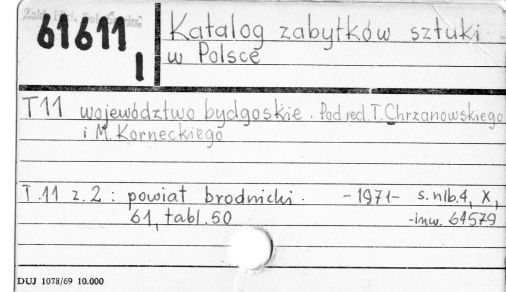 61611
I
Katalog zabytków sztuki
w Polsce
T11 województwo bydgoskie. Pod red. T. Chrzanowskiego
i M. Korneckiego
T.11 z.2: powiat brodnicki. -1971- s.nlb.4, X,
61, tabl.50 -inw. 61579
DUJ 1078/69 10.000